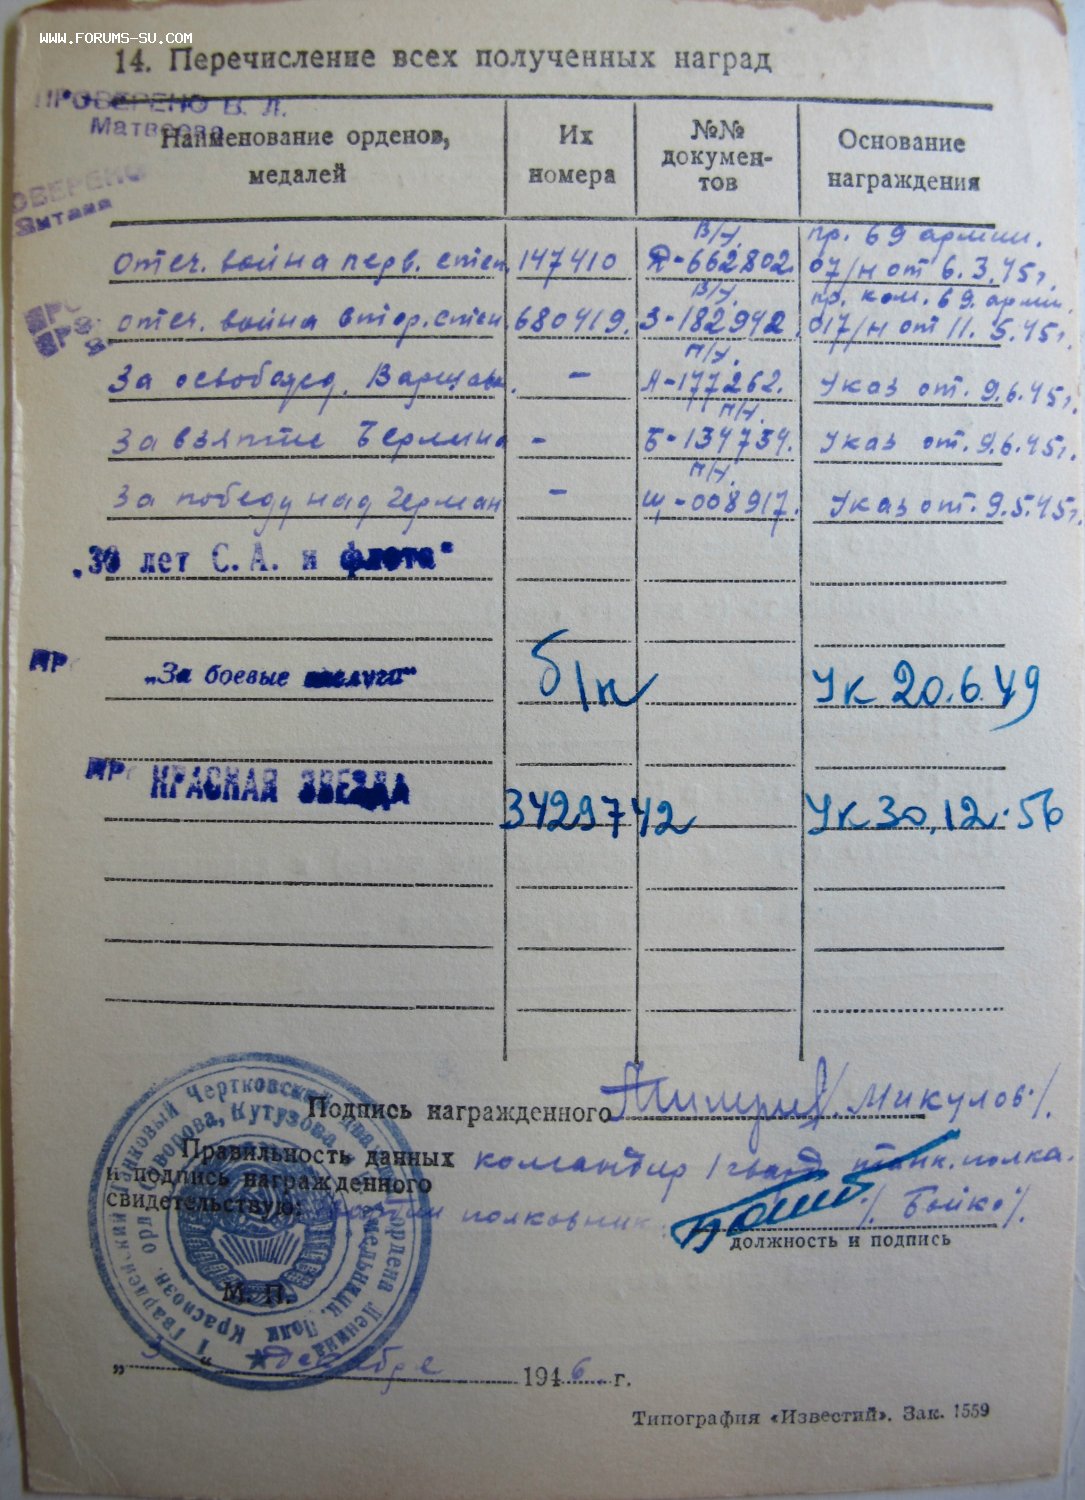 WWW.FORUMS-SU.COM
14. Перечисление всех полученных наград
ПРОВЕРЕНО В. Л.
Матвеева
Наименование орденов, медалей
Их номера
№№ докумен-тов
Основание награждения
ОВЕРЕНО
в/к. пр. 69 армии.
Отеч. война перв. степ. 147410 Д-662802. 07/н от 6.3.45г.
в/к. пр. ком. 69. арми.
отеч. война втор. степ. 680419. З-182942. 017/н от 11.5.45г.
п/у.
За освобожд. Варшавы. - А-177262. Указ от. 9.6.45г.
п/у.
За взятие Берлина - Б-134734. Указ от. 9.6.45г.
п/у.
За победу над Герман - Щ-008917. Указ от. 9.5.45г.
„30 лет С. А. и флота"
ПР „За боевые заслуги" б/н Ук 20.6.49
ПР КРАСНАЯ ЗВЕЗДА 3429742 Ук 30.12.56
Подпись награжденного /Микулов/.
Правильность данных командир 1 гвард. танк. полка.
и подпись награжденного
свидетельствую: гвардии полковник. /. Бойко /.
должность и подпись
М. П.
1 Гвардейский Танковый Чертковский дважды ордена Ленина
орд. Суворова, Кутузова
„3" декабре 1946. г.
Типография «Известий». Зак. 1559